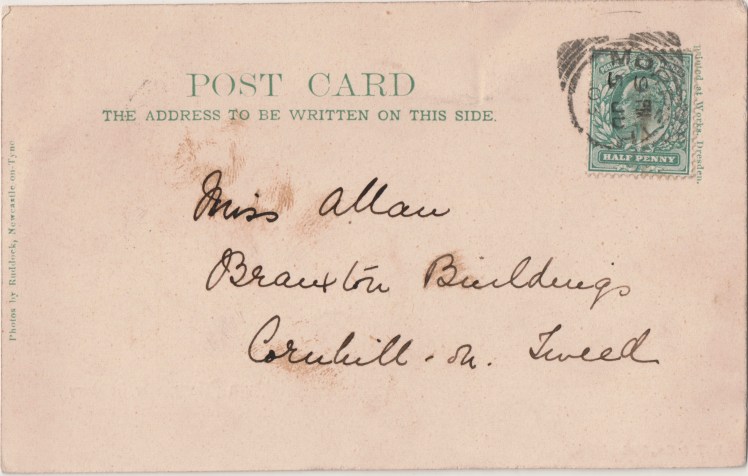 POST CARD
THE ADDRESS TO BE WRITTEN ON THIS SIDE.
HALF PENNY
Miss Allan
Branxton Buildings
Cornhill-on. Tweed
Photos by Ruddock, Newcastle-on-Tyne
at Works, Dresden.